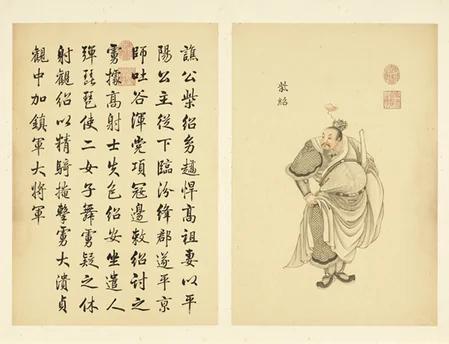 柴紹
譙公柴紹幼趫悍高祖妻以平
陽公主從下臨汾絳郡遂平京
師吐谷渾党項冦邊敕紹討之
虜據高射士失色紹安坐遣人
彈琵琶使二女子舞虜疑之休
射觀紹以精騎掩擊虜大潰貞
觀中加鎮軍大將軍